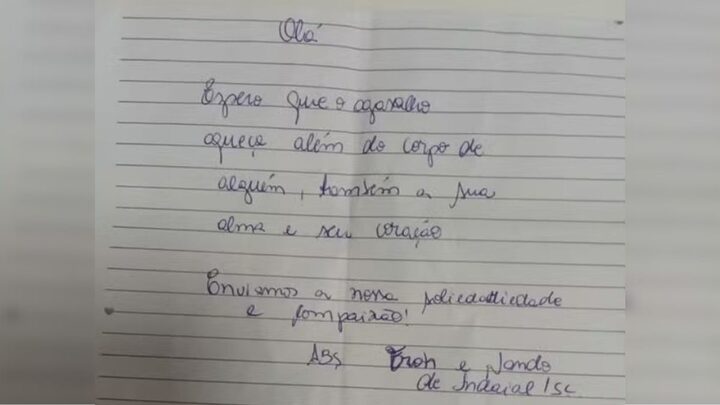 Olá
Espero que o agasalho
aqueça além do corpo de
alguém, também a sua
alma e seu coração
Enviamos a nossa
e compaixão!
ABS e Nando
de Indaial/SC